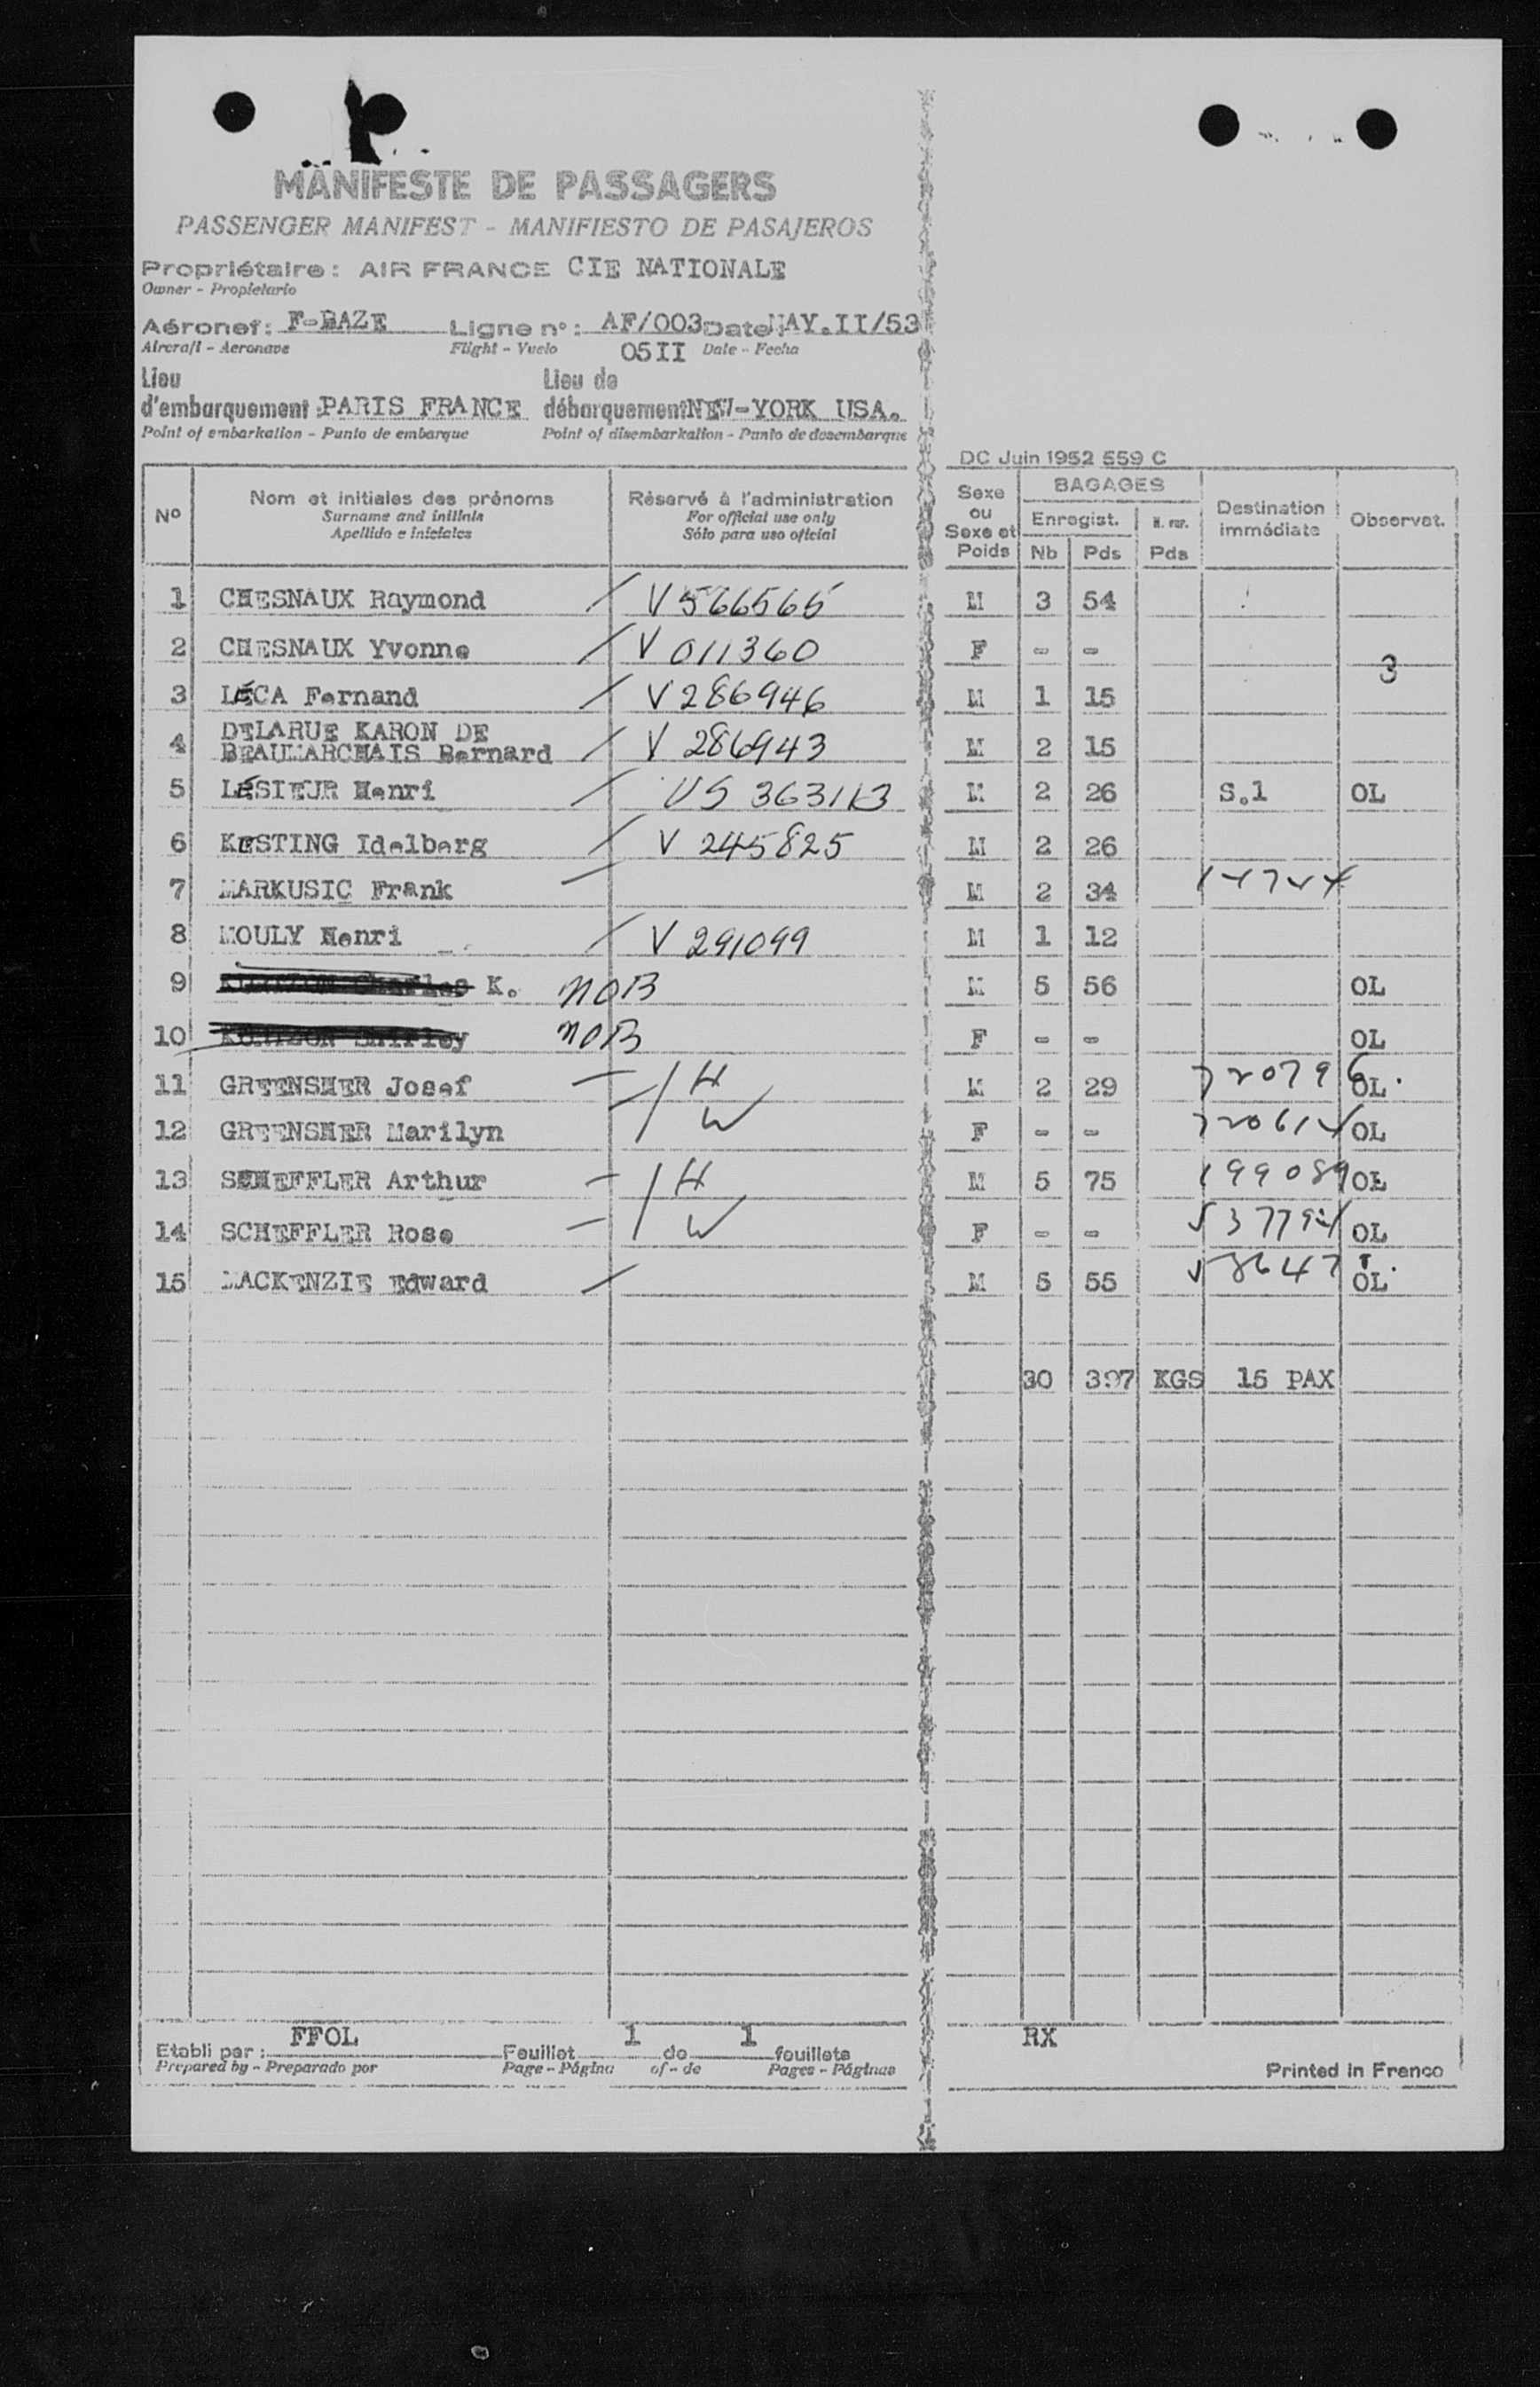 MANIFESTE DE PASSAGERS
PASSENGER MANIFEST - MANIFIESTO DE PASAJEROS
Propriétaire : AIR FRANCE CIE NATIONALE
Owner - Propietario
Aéronef : F-BAZE Ligne n° : AF/003 Date MAY.II/53
Aircraft - Aeronave Flight - Vuelo 05II Date - Fecha
Lieu Lieu de
d'embarquement : PARIS FRANCE débarquement NEW-YORK USA.
Point of embarkation - Punto de embarque Point of disembarkation - Punto de desembarque
DC Juin 1952 559 C
N° Nom et initiales des prénoms Réservé à l'administration Sexe ou Sexe et Poids BAGAGES Destination immédiate Observat.
Surname and initials For official use only Enregist.
Apellido e iniciales Sólo para uso oficial Nb Pds Pds
1 CHESNAUX Raymond / V 566565 M 3 54
2 CHESNAUX Yvonne / V 011360 F - -
3
3 LÉCA Fernand / V 286946 M 1 15
4 DELARUE KARON DE
BEAUMARCHAIS Bernard / V 286943 M 2 15
5 LÉSIEUR Henri / US 363113 M 2 26 S.1 OL
6 KESTING Idelberg / V 245825 M 2 26
7 MARKUSIC Frank M 2 34
8 MOULY Henri / V 291099 M 1 12
9 Charles K. NOB M 5 56 OL
10 Shirley NOB F - - OL
11 GREENSHER Josef / H M 2 29 720796 OL
12 GREENSHER Marilyn / W F - - OL
13 SCHEFFLER Arthur / H M 5 75 199089 OL
14 SCHEFFLER Rose / W F - - OL
15 MACKENZIE Edward / M 5 55 OL
30 397 KGS 15 PAX
Etabli par : FFOL Feuillet 1 de 1 feuillets RX
Prepared by - Preparado por Page - Página of - de Pages - Páginas
Printed in France